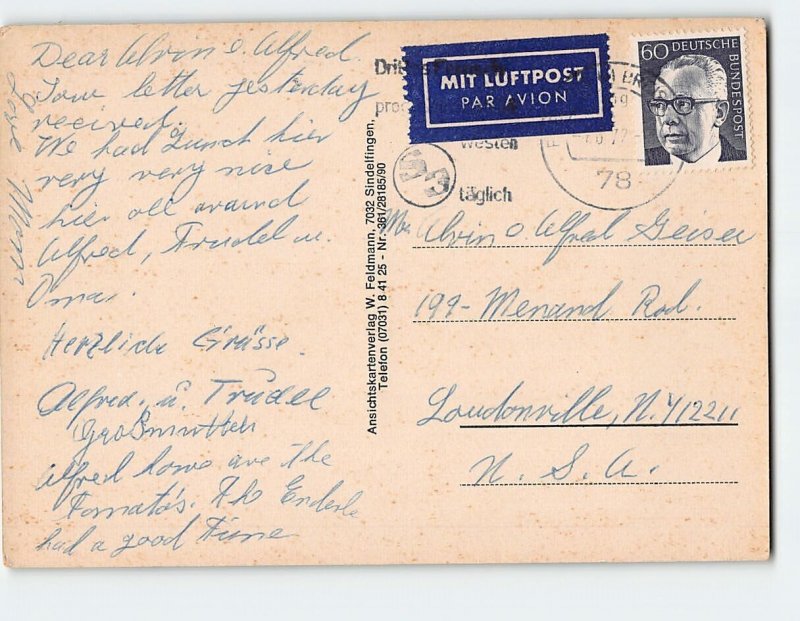 Dear Alvin o. Alfred.
Your letter yesterday
received.
We had Lunch hier
very very nice
hier all around
Alfred, Trudel u.
Oma.
Herzliche Grüsse.
Alfred. u. Trudel
Großmutter
Alfred how are the
Tomato's. The Enderle
had a good Time
Love Mom
Ansichtskartenverlag W. Feldmann, 7032 Sindelfingen,
Telefon (07031) 8 41 25 - Nr. 361/28185/90
MIT LUFTPOST
PAR AVION
60 DEUTSCHE
BUNDESPOST
westen
täglich
78
Mr. Alvin o Alfred Geiser
199- Menand Rod.
Loudonville, N.Y 12211
U. S. A.